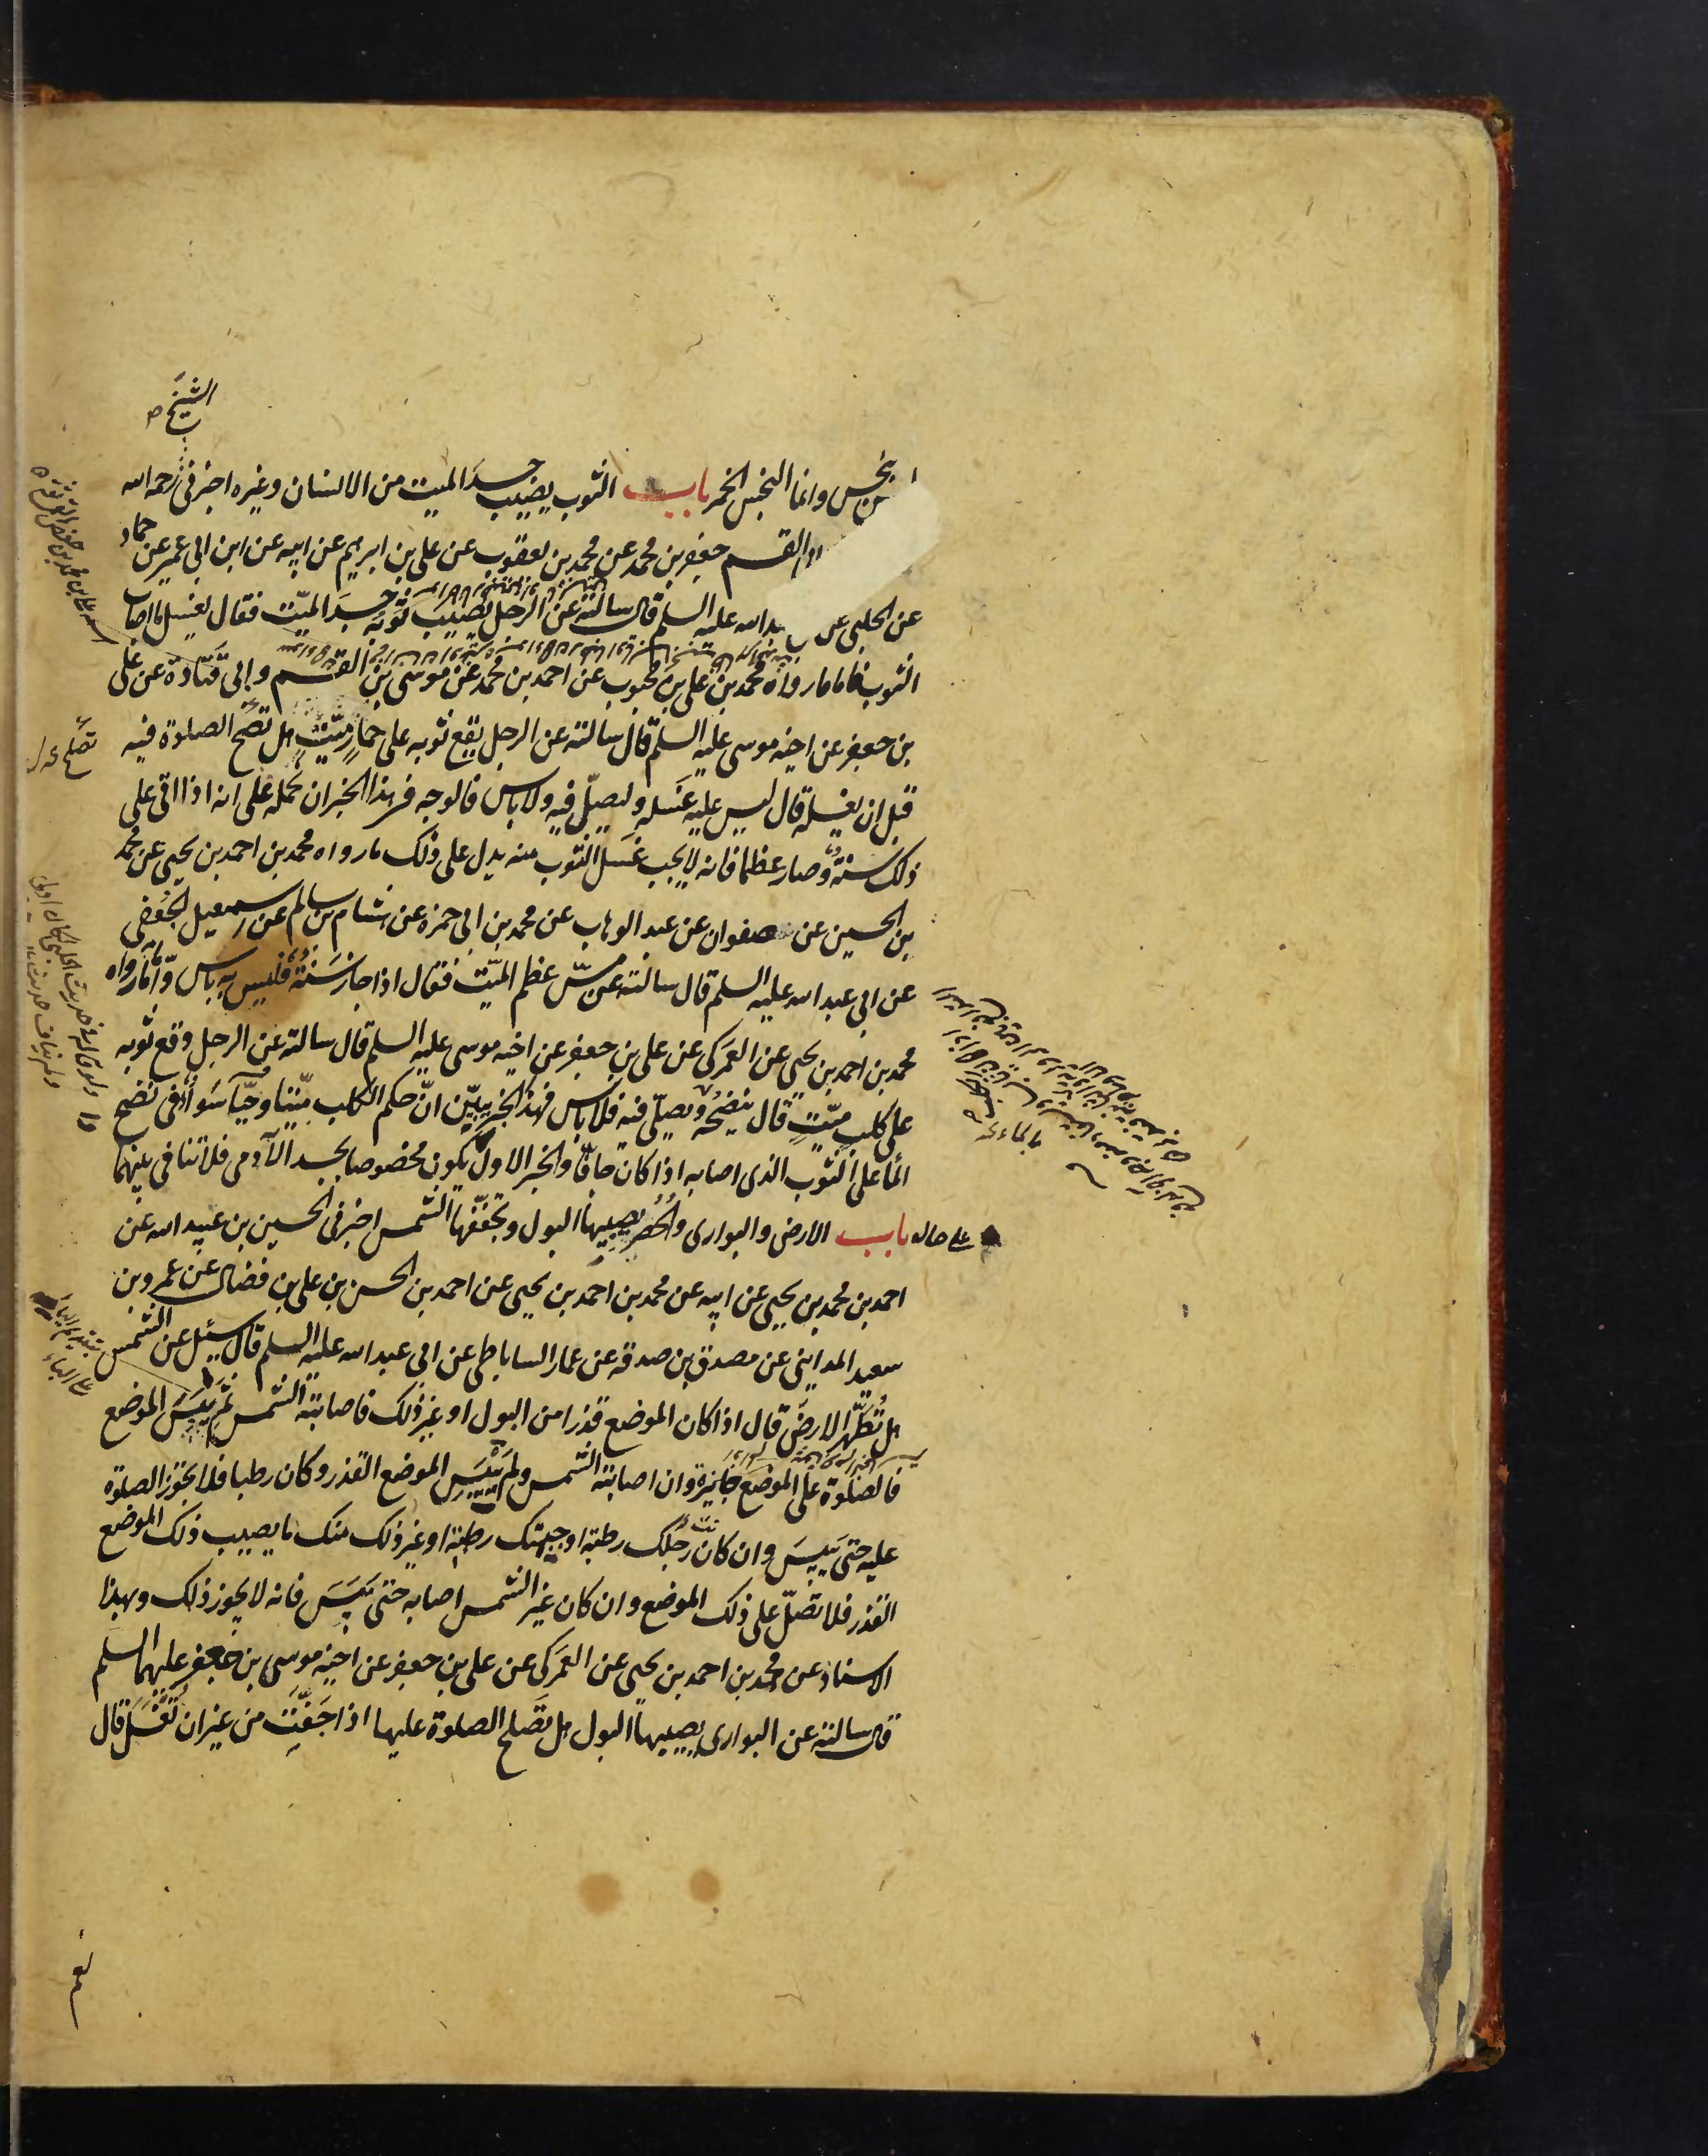 الشيخ
ينجس وانما النجس الخمر باب الثوب يصيب جسد الميت من الانسان وغيره اخبرنى رحمه الله
القسم جعفر بن محمد عن محمد بن يعقوب عن على بن ابرهيم عن ابيه عن ابن ابى عمير عن حماد
عن الحلبى عن عبد الله عليه السلم قال سالته عن الرجل يصيب ثوبه جسد الميّت فقال يغسل ما اصاب
الثوب فاما ما رواه محمد بن على بن محبوب عن احمد بن محمد عن موسى بن القسم وابى قتادة عن على
بن جعفر عن اخيه موسى عليه السلم قال سالته عن الرجل يقع ثوبه على حمار ميّت هل تصح الصلوة فيه
قبل ان يغسله قال ليس عليه غسله وليصلّ فيه ولا باس فالوجه فى هذا الخبر ان نحمله على انه اذا اتى على
ذلك سنة وصار عظما فانه لا يجب غسل الثوب منه يدل على ذلك ما رواه محمد بن احمد بن يحيى عن محمد
بن الحسين عن صفوان عن عبد الوهاب عن محمد بن ابى حمزه عن هشام بن سالم عن اسمعيل الجعفى
عن ابى عبد الله عليه السلم قال سالته عن مسّ عظم الميّت فقال اذا جاز سنة فليس به باس وأمّا ما رواه
محمد بن احمد بن يحيى عن العمركى عن على بن جعفر عن اخيه موسى عليه السلم قال سالته عن الرجل وقع ثوبه
على كلب ميّت قال ينضحه ويصلّى فيه فلا باس فهذا الخبر يبيّن انّ حكم الكلب ميّتا وحيّا سواء فى نضح
الما على الثوب الذى اصابه اذا كان جافّا والخبر الاول يكون مخصوصا بجسد الآدمى فلا تنافى بينهما
على حال باب الارض والبوارى والحصر يصيبها البول وتجففها الشمس اخبرنى الحسين بن عبيد الله عن
احمد بن محمد بن يحيى عن ابيه عن محمد بن احمد بن يحيى عن احمد بن الحسن بن على بن فضال عن عمرو بن
سعيد المداينى عن مصدق بن صدقه عن عمار الساباطى عن ابى عبد الله عليه السلم قال سئل عن الشمس
هل تُطهّر الارض قال اذا كان الموضع قذرا من البول او غير ذلك فاصابته الشمس ثم يبس الموضع
فالصلوة على الموضع جايزة وان اصابته الشمس ولم ييبس الموضع القذر وكان رطبا فلا يجوز الصلوة
عليه حتى ييبس وان كان رجلك رطبة او جبهتك رطبة او غير ذلك منك ما يصيب ذلك الموضع
القذر فلا تصلّ على ذلك الموضع وان كان غير الشمس اصابه حتى ييبس فانه لا يجوز ذلك وبهذا
الاسناد عن محمد بن احمد بن يحيى عن العمركى عن على بن جعفر عن اخيه موسى بن جعفر عليهما السلم
قال سالته عن البوارى يصيبها البول هل تصلح الصلوة عليها اذا جفّت من غير ان تغسل قال
نعم
تصلح
بتقديم الياء
على الباء
بالماء